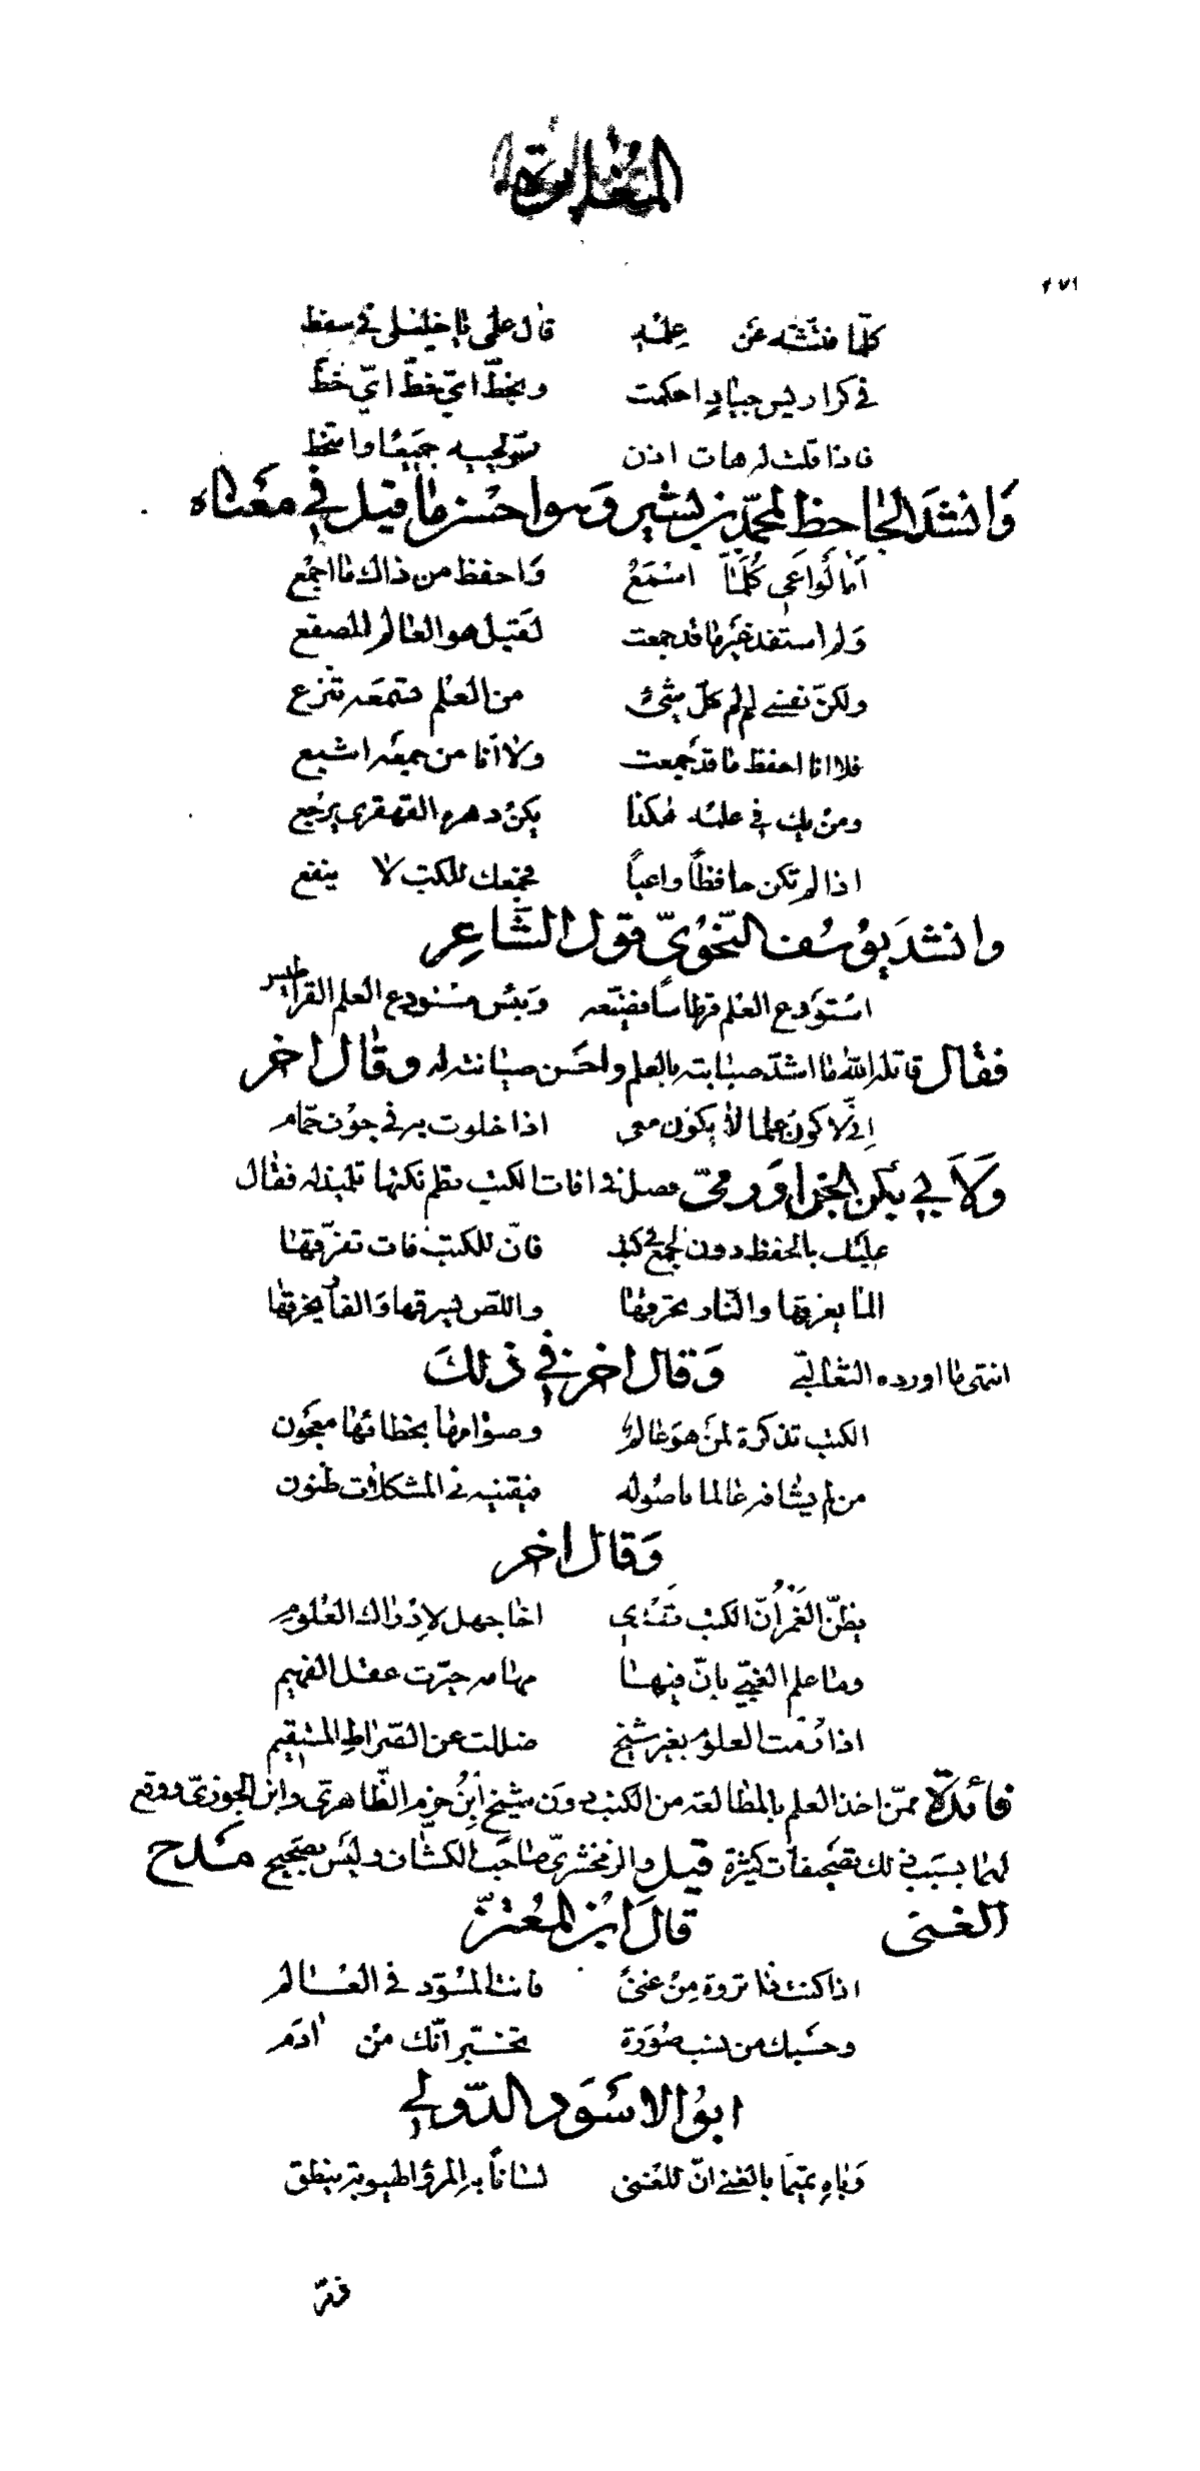 ٤٧١
كلّما فتّشته عن علمه قال علمى يا خليلى فى سفط
فى كراريس جياد احكمت وبخطّ اىّ خطّ اىّ خطّ
فاذا قلت له هات اذن لحييه جميعا وامتخط
وانشد الجاحظ لمحمّد بن بشير وهو احسن ما قيل فى معناه
أما لو اعى كلما اسمع واحفظ من ذاك ما اجمع
ولم استفد غير ما قد جمعت لقيل هو العالم المصقع
ولكنّ نفسى الى كلّ شئ من العلم تسمعه تنزع
فلا انا احفظ ما قد جمعت ولا انا من جمعه اشبع
ومن يك فى علمه هكذا يكن دهره القهقرى يرجع
اذا لم تكن حافظا واعيا فجمعك للكتب لا ينفع
وانشد يوسف النّحوىّ قول الشّاعر
استودع العلم قرطاسا فضيّعه وبئس مستودع العلم القراطيس
فقال قاتله الله ما اشدّ صبابته بالعلم واحسن صيانته له وقال اخر
انّى لاكره علما لا يكون معى اذا خلوت به فى جوف حمّام
عليك بالحفظ دون الجمع فى كتب فانّ للكتب افات تفرّقها
الما يغرقها والنّار تحرقها واللصّ يسرقها والفأر يخرقها
انتهى ما اورده الثعالبى وقال اخر فى ذلك
الكتب تذكرة لمن هو عالم وصوابها بخطائها معجون
من لم يشافه عالما باصوله فيقينه فى المشكلات ظنون
وقال اخر
يظنّ الغمر أنّ الكتب تهدى اخا جهل لادراك العلوم
وما علم الغبىّ بانّ فيها مهامه حيّرت عقل الفهيم
اذا رمت العلوم بغير شيخ ضللت عن الصّراط المستقيم
فائدة ممّن اخذ العلم بالمطالعة من الكتب دون شيخ ابن حزم الظّاهرى وابن الجوزىّ ووقع
لهما بسبب ذلك تصحيفات كثيرة قيل والزمخشرىّ صاحب الكشّاف وليس بصحيح مدح
الغنى قال ابن المعتزّ
اذا كنت ذا ثروة من غنى فانت المسوّد فى العالم
وحسبك من نسب صورة تخبّر انّك من ادم
ابو الاسود الدّولى
وباه تميما بالغنى انّ للغنى لسانا به المرؤ الهيوبة ينطق